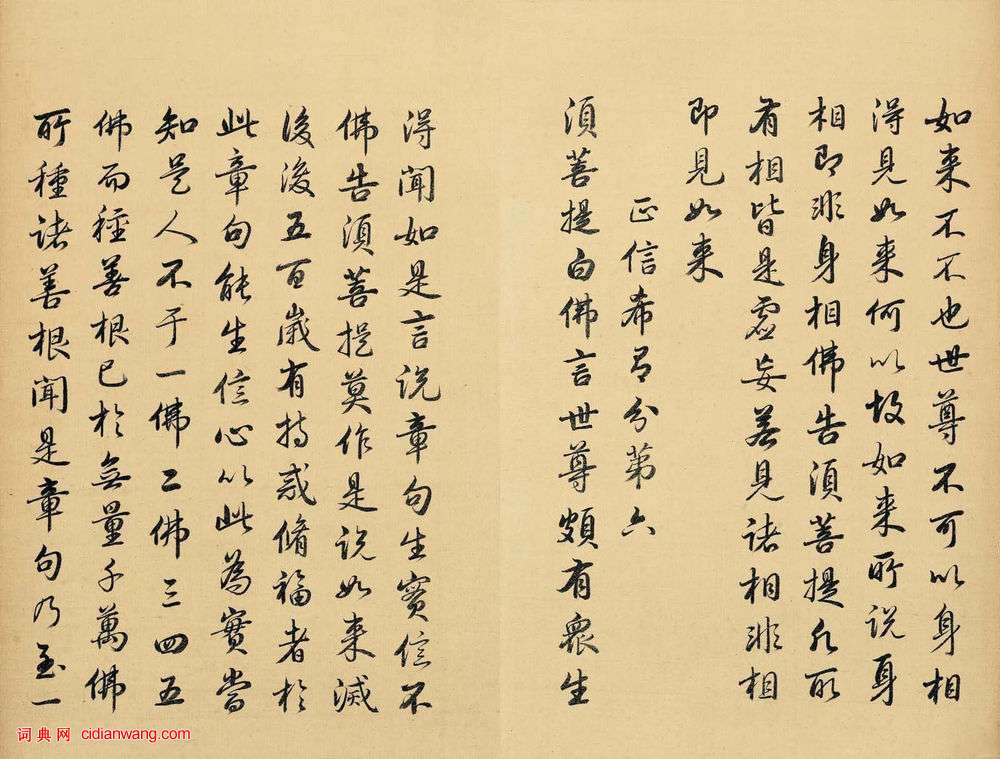 如来不不也世尊不可以身相
得見如来何以故如来所说身
相即非身相佛告須菩提凡所
有相皆是虚妄若見诸相非相
即見如来
正信希有分第六
須菩提白佛言世尊頗有衆生
得聞如是言说章句生實信不
佛告須菩提莫作是说如来滅
後後五百歲有持戒脩福者於
此章句能生信心以此為實當
知是人不于一佛二佛三四五
佛而種善根已於無量千萬佛
所種诸善根聞是章句乃至一
词典网 cidianwang.com